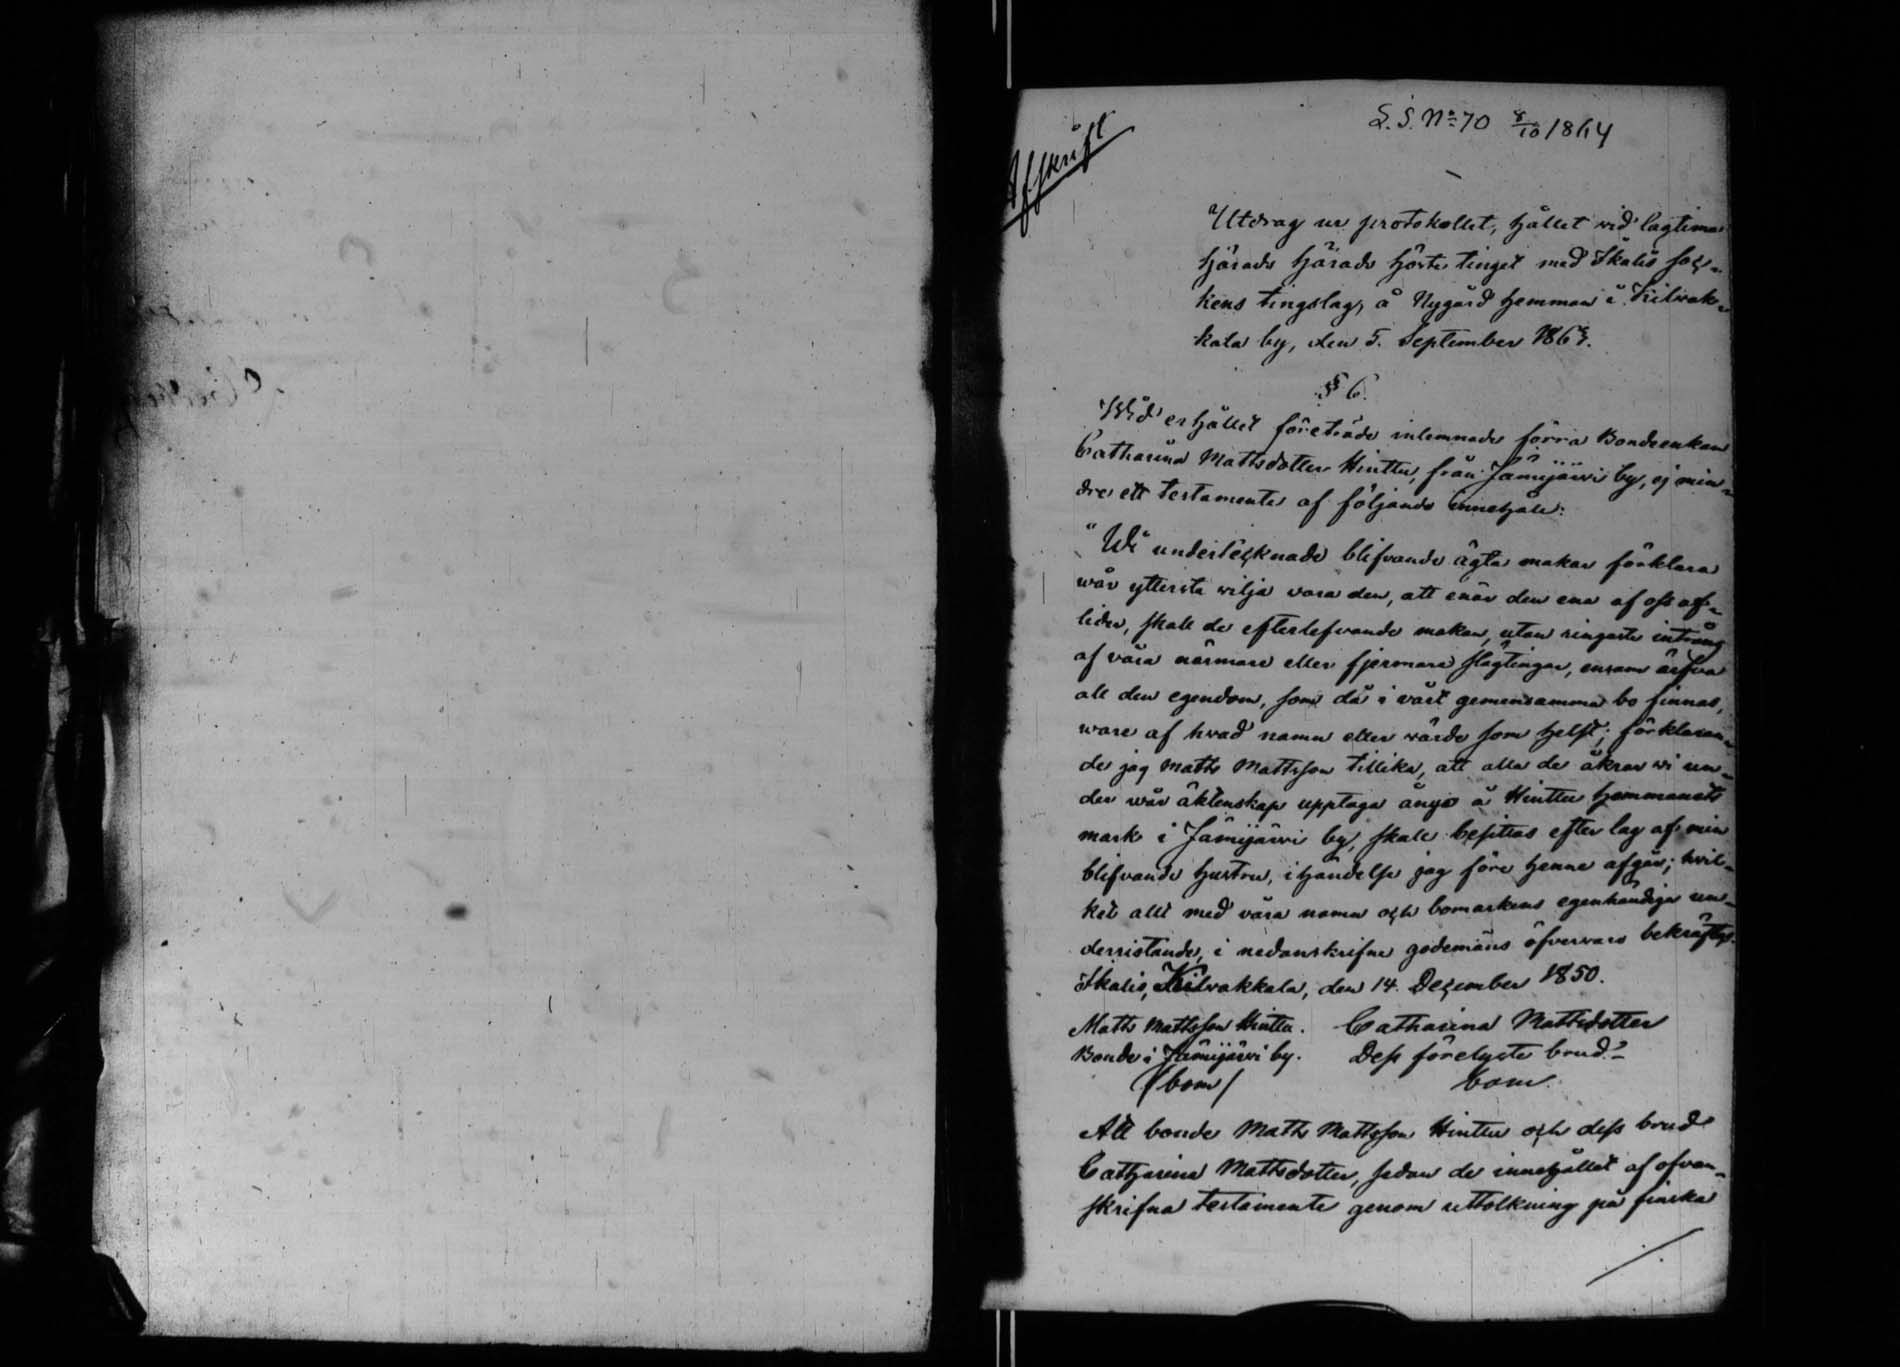 Afskrift
L. S. No 70 8/10 1864
Utdrag ur protokollet, hållet vid lagtima
härads härads höste tinget med Ikalis soc-
kens tingslag, å Nygård hemman i Kilwak-
kala by, den 5. September 1864.
§ 6.
Wid erhållet företräde inlemnade förra Bondeenkan
Catharina Mattsdotter Hinttu, från Jämijärvi by, ej min-
dre ett testamente af följande innehåll:
"Wi undertecknade blifvande ägta makar förklara
vår yttersta vilja vara den, att enär den ena af oss af-
lider, skall de efterlefvande makan, utan ringaste intrång
af våra närmare eller fjermare slägtingar, ensam ärfva
all den egendom, som då i vårt gemensamma bo finnas,
ware af hvad namn eller värde som helst; förklaran-
de jag Matts Mattsson tillika, att alla de åkrar vi un-
der vår äktenskap upptaga ånyo å Hinttu hemmanets
mark i Jämijärvi by, skall besittas efter lag af min
blifvande hustru, i händelse jag före henne afgår; hvil-
ket allt med våra namn och bomärkens egenhändiga un-
derristande, i nedanskrifne godemäns öfvervaro bekräftas.
Ikalis, Kilvakkala, den 14. December 1850.
Matts Mattsson Hinttu. Catharina Mattsdotter
Bonde i Jämijärvi by. Dess förelyste brud."
(bom) bom.
Att bonde Matts Mattsson Hinttu och dess brud
Catharina Mattsdotter, sedan de innehållet af ofvan-
skrifna testamente genom uttolkning på finska